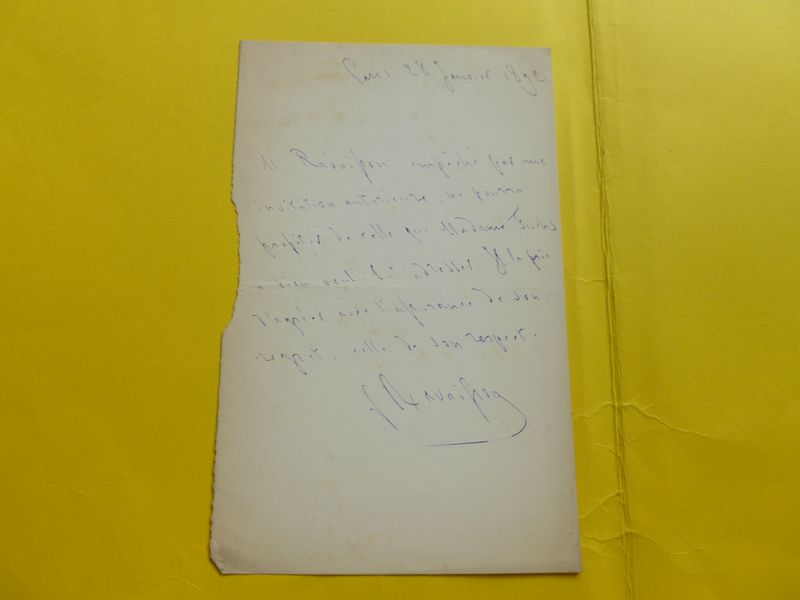 Paris 28 Janvier 1892.
M. Ravaisson empêché par une
invitation antérieure, ne pourra
profiter de celle que Madame
a bien voulu lui adresser. Il la prie
d'agréer avec l'assurance de son
regret, celle de son respect.
F Ravaisson